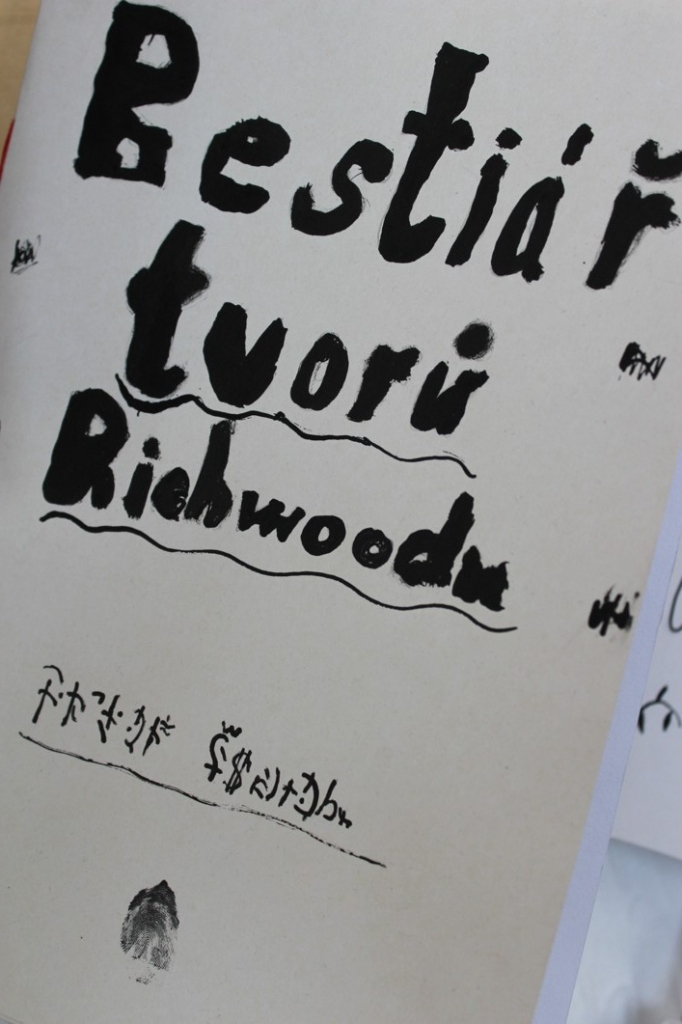 Bestiář
tvorů
Richwoodu